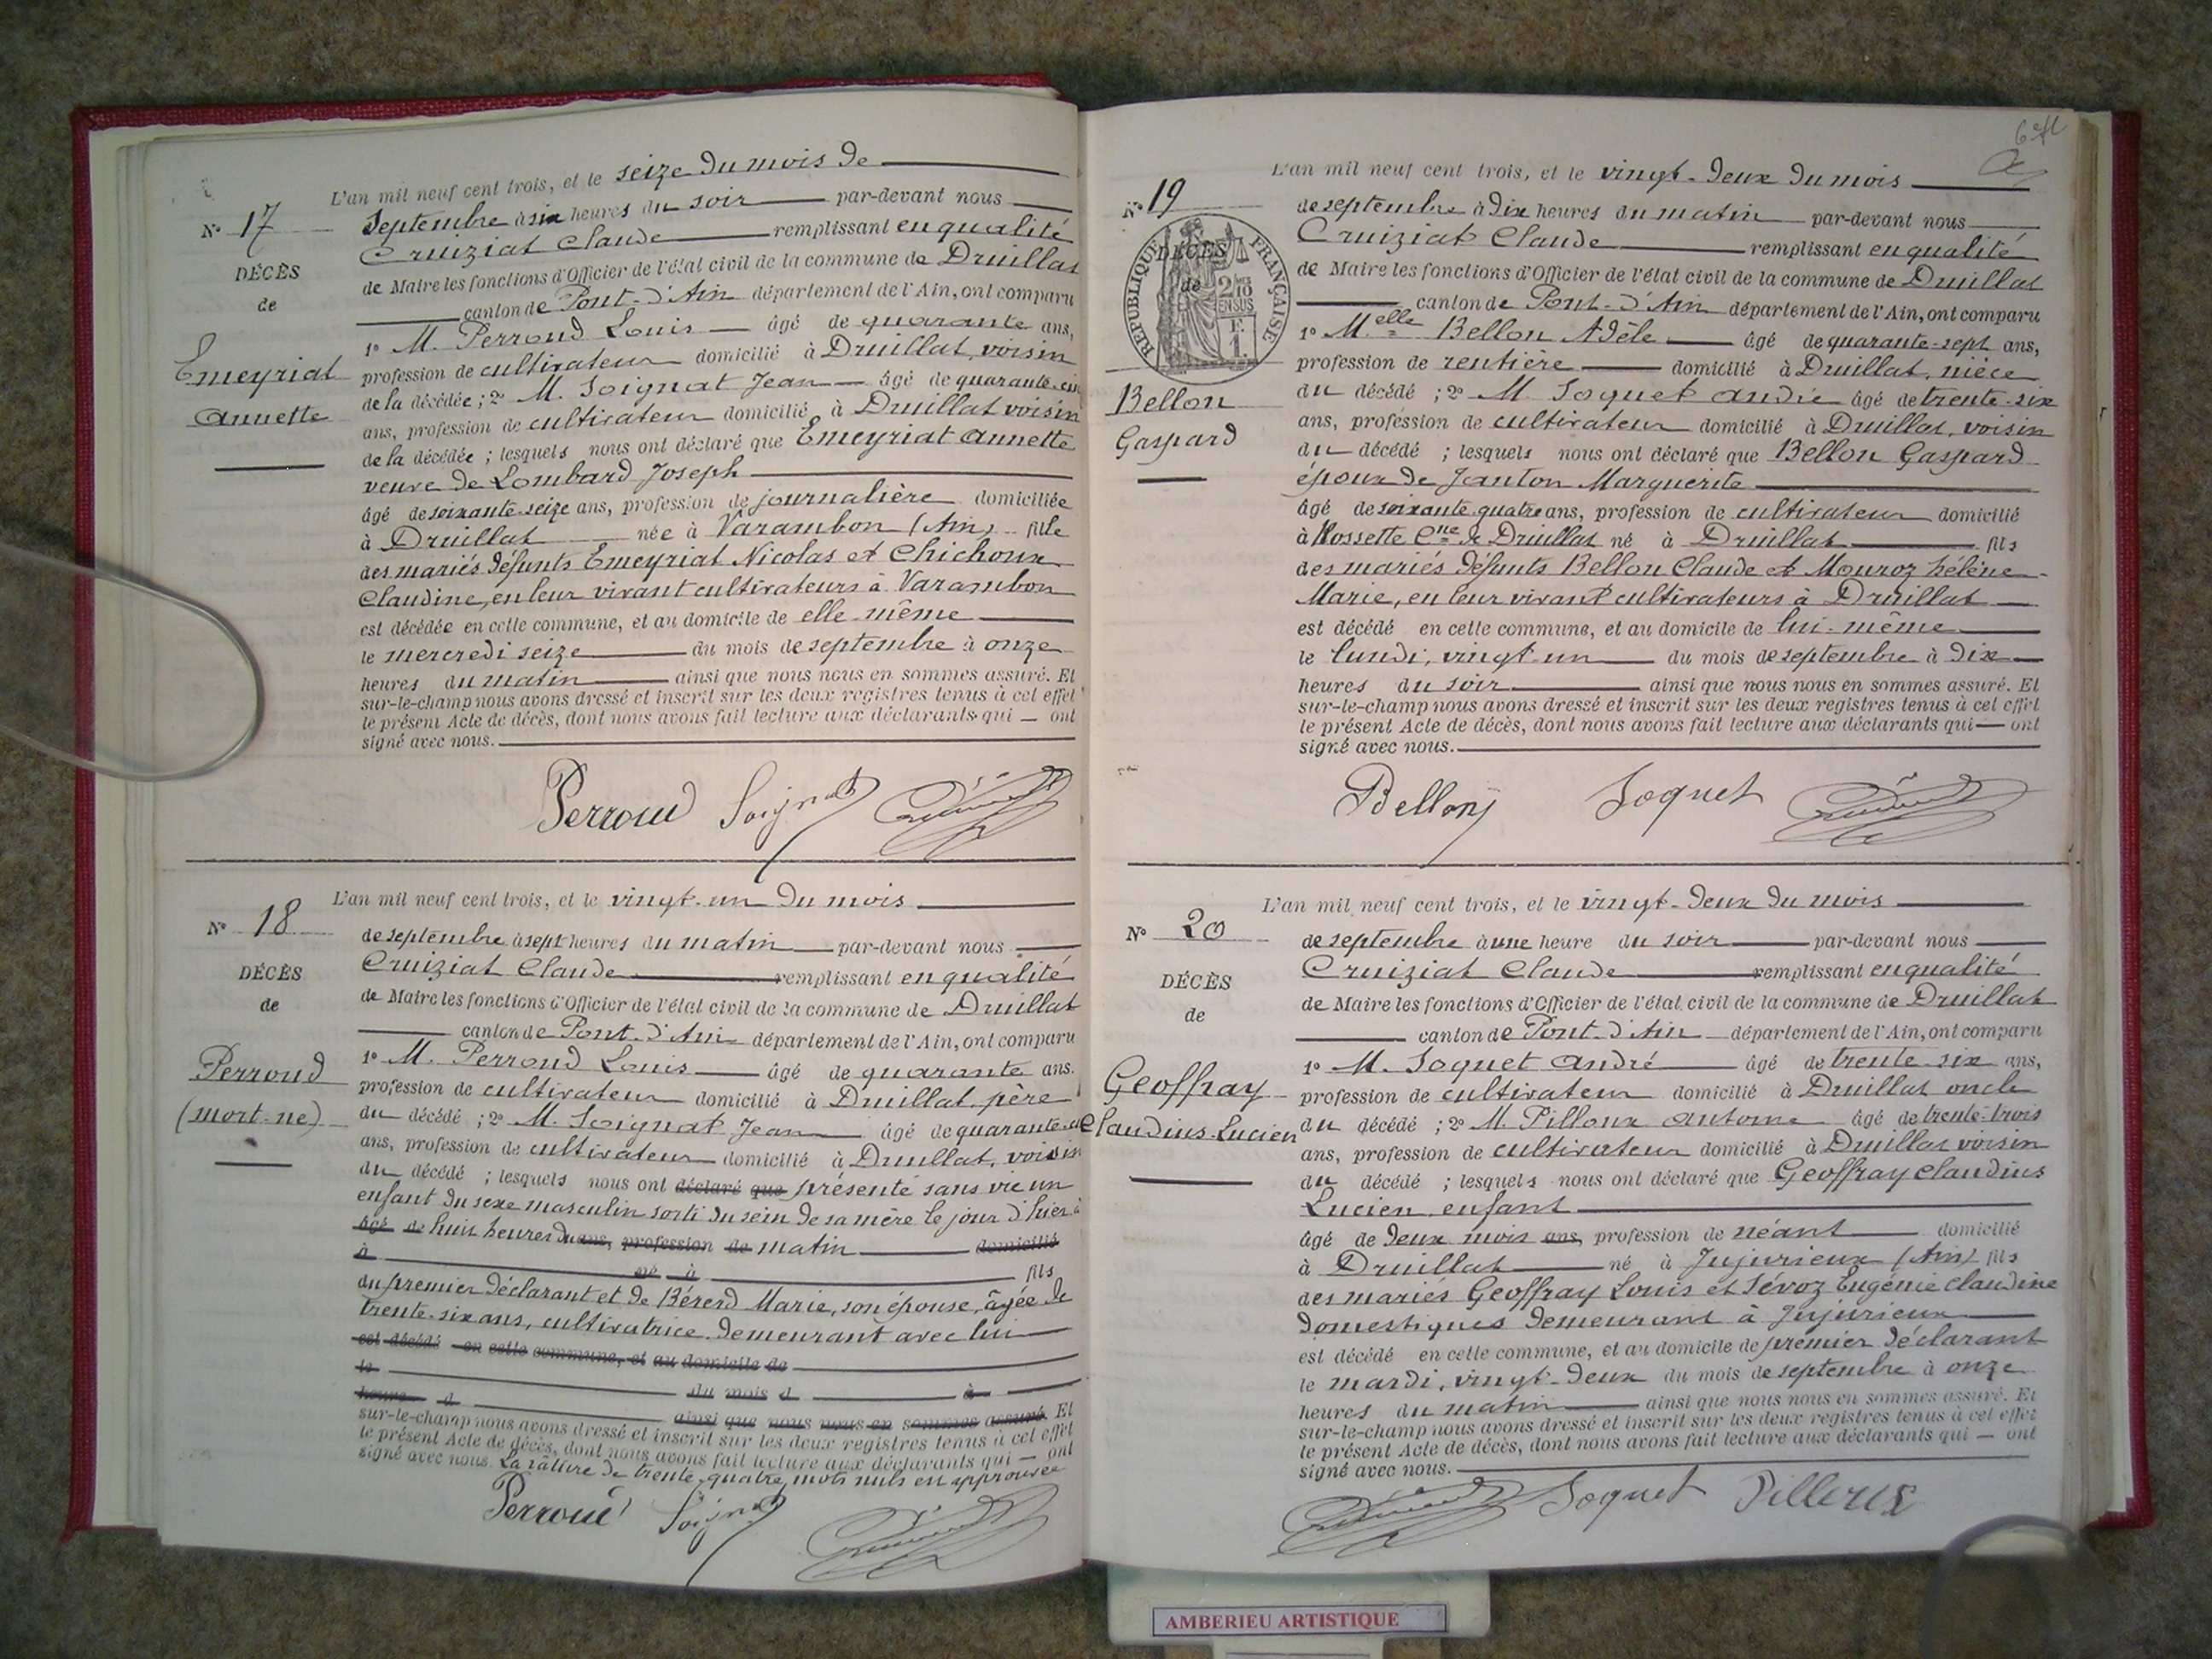 L'an mil neuf cent trois, et le seize du mois de
N° 17
Septembre à six heures du soir par-devant nous
Cruiziat Claude remplissant en qualité
DÉCÈS
de Maire les fonctions d'Officier de l'état civil de la commune de Druillat
de
canton de Pont-d'Ain département de l'Ain, ont comparu
1° M. Perroud Louis âgé de quarante ans,
Emeyriat
profession de cultivateur domicilié à Druillat, voisin
de la décédée ; 2° M. Soignat Jean âgé de quarante
Annette
ans, profession de cultivateur domicilié à Druillat voisin
de la décédée ; lesquels nous ont déclaré que Emeyriat Annette
veuve de Lombard Joseph
âgé de soixante-seize ans, profession de journalière domiciliée
à Druillat née à Varambon (Ain) fille
des mariés défunts Emeyriat Nicolas et Chichoux
Claudine, en leur vivant cultivateurs à Varambon
est décédée en cette commune, et au domicile de elle-même
le mercredi seize du mois de septembre à onze
heures du matin ainsi que nous nous en sommes assuré. Et
sur-le-champ nous avons dressé et inscrit sur les deux registres tenus à cet effet
le présent Acte de décès, dont nous avons fait lecture aux déclarants qui — ont
signé avec nous.
Perroud Soignat
L'an mil neuf cent trois, et le vingt-un du mois
N° 18
de septembre à sept heures du matin par-devant nous
Cruiziat Claude remplissant en qualité
DÉCÈS
de Maire les fonctions d'Officier de l'état civil de la commune de Druillat
de
canton de Pont-d'Ain département de l'Ain, ont comparu
1° M. Perroud Louis âgé de quarante ans.
Perroud
profession de cultivateur domicilié à Druillat, père
(mort-né)
du décédé ; 2° M. Soignat Jean âgé de quarante
ans, profession de cultivateur domicilié à Druillat, voisin
du décédé ; lesquels nous ont déclaré que présenté sans vie un
enfant du sexe masculin sorti du sein de sa mère le jour d'hier à
âgé de huit heures du ans, profession de matin domicilié
à
né à fils
du premier déclarant et de Bérerd Marie, son épouse, âgée de
trente-six ans, cultivatrice demeurant avec lui
est décédé en cette commune, et au domicile de
le
heure d du mois d à
ainsi que nous nous en sommes assuré. Et
sur-le-champ nous avons dressé et inscrit sur les deux registres tenus à cet effet
le présent Acte de décès, dont nous avons fait lecture aux déclarants qui — ont
signé avec nous. La rature de trente-quatre mots nuls en approuvée
Perroud Soignat
L'an mil neuf cent trois, et le vingt-deux du mois
N° 19
de septembre à dix heures du matin par-devant nous
Cruiziat Claude remplissant en qualité
RÉPUBLIQUE FRANÇAISE
DÉCÈS
de
2/10 EN SUS
F. 1.
de Maire les fonctions d'Officier de l'état civil de la commune de Druillat
canton de Pont-d'Ain département de l'Ain, ont comparu
1° Melle Bellon Adèle âgé de quarante-sept ans,
profession de rentière domicilié à Druillat, nièce
Bellon
du décédé ; 2° M. Joquet André âgé de trente-six
ans, profession de cultivateur domicilié à Druillat, voisin
Gaspard
du décédé ; lesquels nous ont déclaré que Bellon Gaspard
époux de Janton Marguerite
âgé de soixante-quatre ans, profession de cultivateur domicilié
à Rossette Cne de Druillat né à Druillat fils
des mariés défunts Bellon Claude et Mouroz hélène
Marie, en leur vivant cultivateurs à Druillat
est décédé en cette commune, et au domicile de lui-même
le lundi, vingt-un du mois de septembre à dix
heures du soir ainsi que nous nous en sommes assuré. Et
sur-le-champ nous avons dressé et inscrit sur les deux registres tenus à cet effet
le présent Acte de décès, dont nous avons fait lecture aux déclarants qui — ont
signé avec nous.
Bellon Joquet
L'an mil neuf cent trois, et le vingt-deux du mois
N° 20
de septembre à une heure du soir par-devant nous
Cruiziat Claude remplissant en qualité
DÉCÈS
de Maire les fonctions d'Officier de l'état civil de la commune de Druillat
de
canton de Pont-d'Ain département de l'Ain, ont comparu
1° M. Joquet André âgé de trente-six ans,
Geoffray
profession de cultivateur domicilié à Druillat oncle
Claudius-Lucien
du décédé ; 2° M. Pilloux Antoine âgé de trente-trois
ans, profession de cultivateur domicilié à Druillat voisin
du décédé ; lesquels nous ont déclaré que Geoffray Claudius
Lucien enfant
âgé de deux mois ans, profession de néant domicilié
à Druillat né à Jujurieux (Ain) fils
des mariés Geoffray Louis et Sévoz Eugénie Claudine
domestiques demeurant à Jujurieux
est décédé en cette commune, et au domicile de premier déclarant
le mardi, vingt-deux du mois de septembre à onze
heures du matin ainsi que nous nous en sommes assuré. Et
sur-le-champ nous avons dressé et inscrit sur les deux registres tenus à cet effet
le présent Acte de décès, dont nous avons fait lecture aux déclarants qui — ont
signé avec nous.
Joquet Pilloux
AMBERIEU ARTISTIQUE